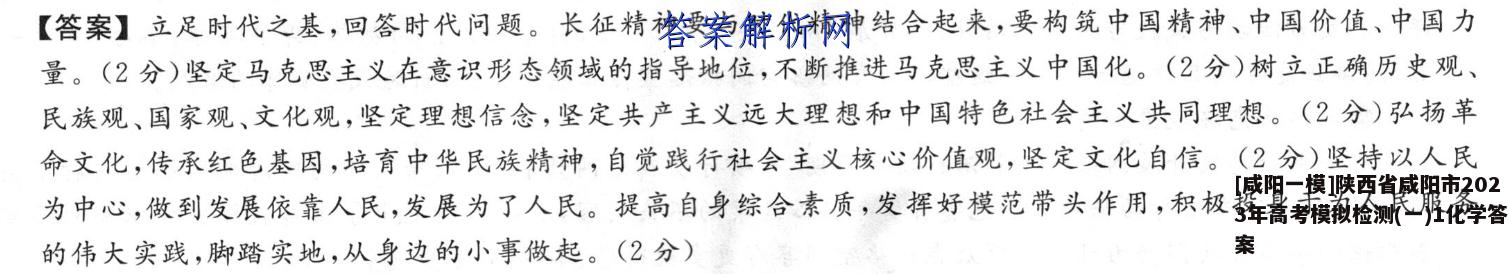 【答案】立足时代之基,回答时代问题。长征精神要 精神结合起来,要构筑中国精神、中国价值、中国力
答案解析网
量。(2分)坚定马克思主义在意识形态领域的指导地位,不断推进马克思主义中国化。(2分)树立正确历史观、
民族观、国家观、文化观,坚定理想信念,坚定共产主义远大理想和中国特色社会主义共同理想。(2分)弘扬革
命文化,传承红色基因,培育中华民族精神,自觉践行社会主义核心价值观,坚定文化自信。(2分)坚持以人民
为中心,做到发展依靠人民,发展为了人民。提高自身综合素质,发挥好模范带头作用,积极投身于为人民服务
的伟大实践,脚踏实地,从身边的小事做起。(2分)
[咸阳一模]陕西省咸阳市202
3年高考模拟检测(一)1化学答
案